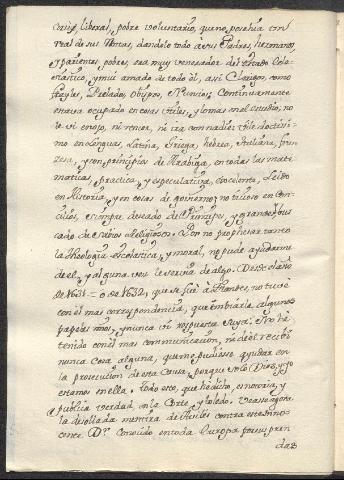 liberal, pobre voluntario, que no poseìa un
real de sus Rentas, dandolo todo a sus Padres, hermanos,
y parientes pobres, era muy venerador del estado Ecle-
siastico, y mui amado de todo èl, asi Clerigos, como
frayles, Prelados, Obispos, Nuncios, Continuamente
estava ocupado en cosas utiles, y lo mas en el estudio; no
le vi enojo, ni rencor, ni ira con nadie: fue doctissi-
mo en lenguas, latina, Griega, hebrea, Italiana, fran-
zesa, y con principios de Arabiga, en todas las mate-
maticas, practica, y especulativa, excelente, Leìdo
en Historia, y en cosas de govierno; no tuvo en Con-
cilios, siempre deseado de Principes y grandes, bus-
cado de Sabios Religiosos. Por no prophesar tanto
la Theologìa Escolastica, y moral, no pude ayudarme
de el, y alguna vez le serviria de algo. Desde el año
de 1631. = o de 1632, que se fuè à Flandes, no tuve
con èl mas correspondencia, que embiarle algunos
papeles mios, y nunca vi respuesta suya. No hè
tenido con èl mas communicacion, ni de èl recibì
nunca cosa alguna, que no pudiesse ayudar en
la prosecucion de esta Causa, porque solo Dios, y yo
estamos en ella. Todo esto, que hè dicho, es notorio, y
publica verdad, en la Corte, y toledo. Vease agora
la desollada mentira de Aviles contra este Ino-
cente Dr. Conocido en toda Europa por sus pren
das